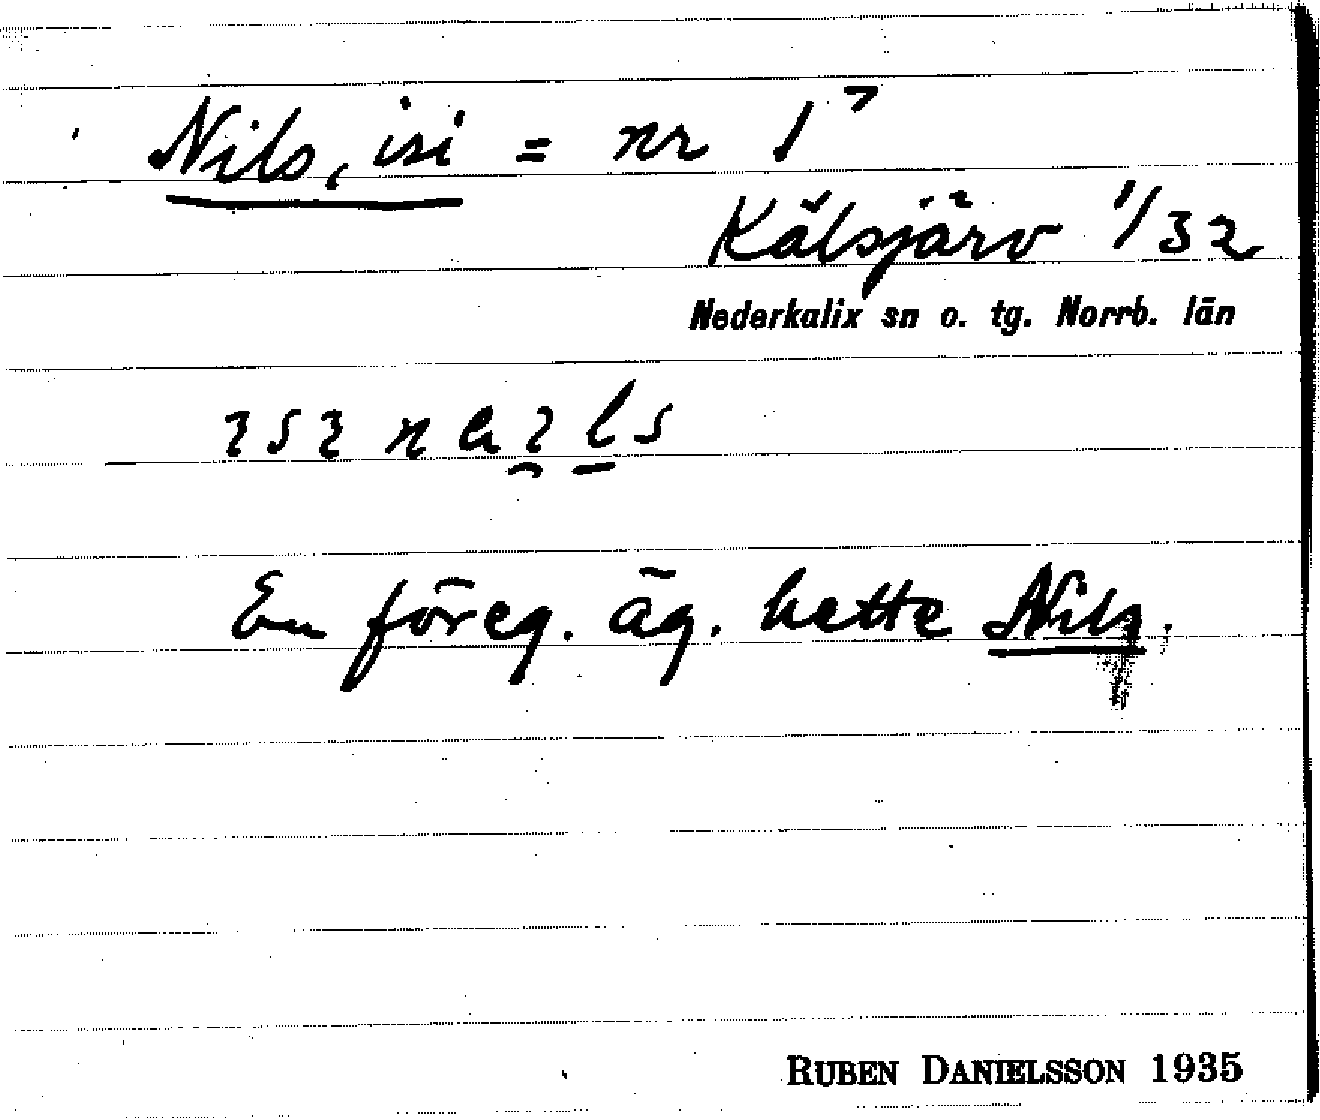 Nils, isi = nr 1⁷
Kälsjärv 1/32
Nederkalix sn o. tg. Norrb. län
En föreg. äg. hette Nils.
RUBEN DANIELSSON 1935